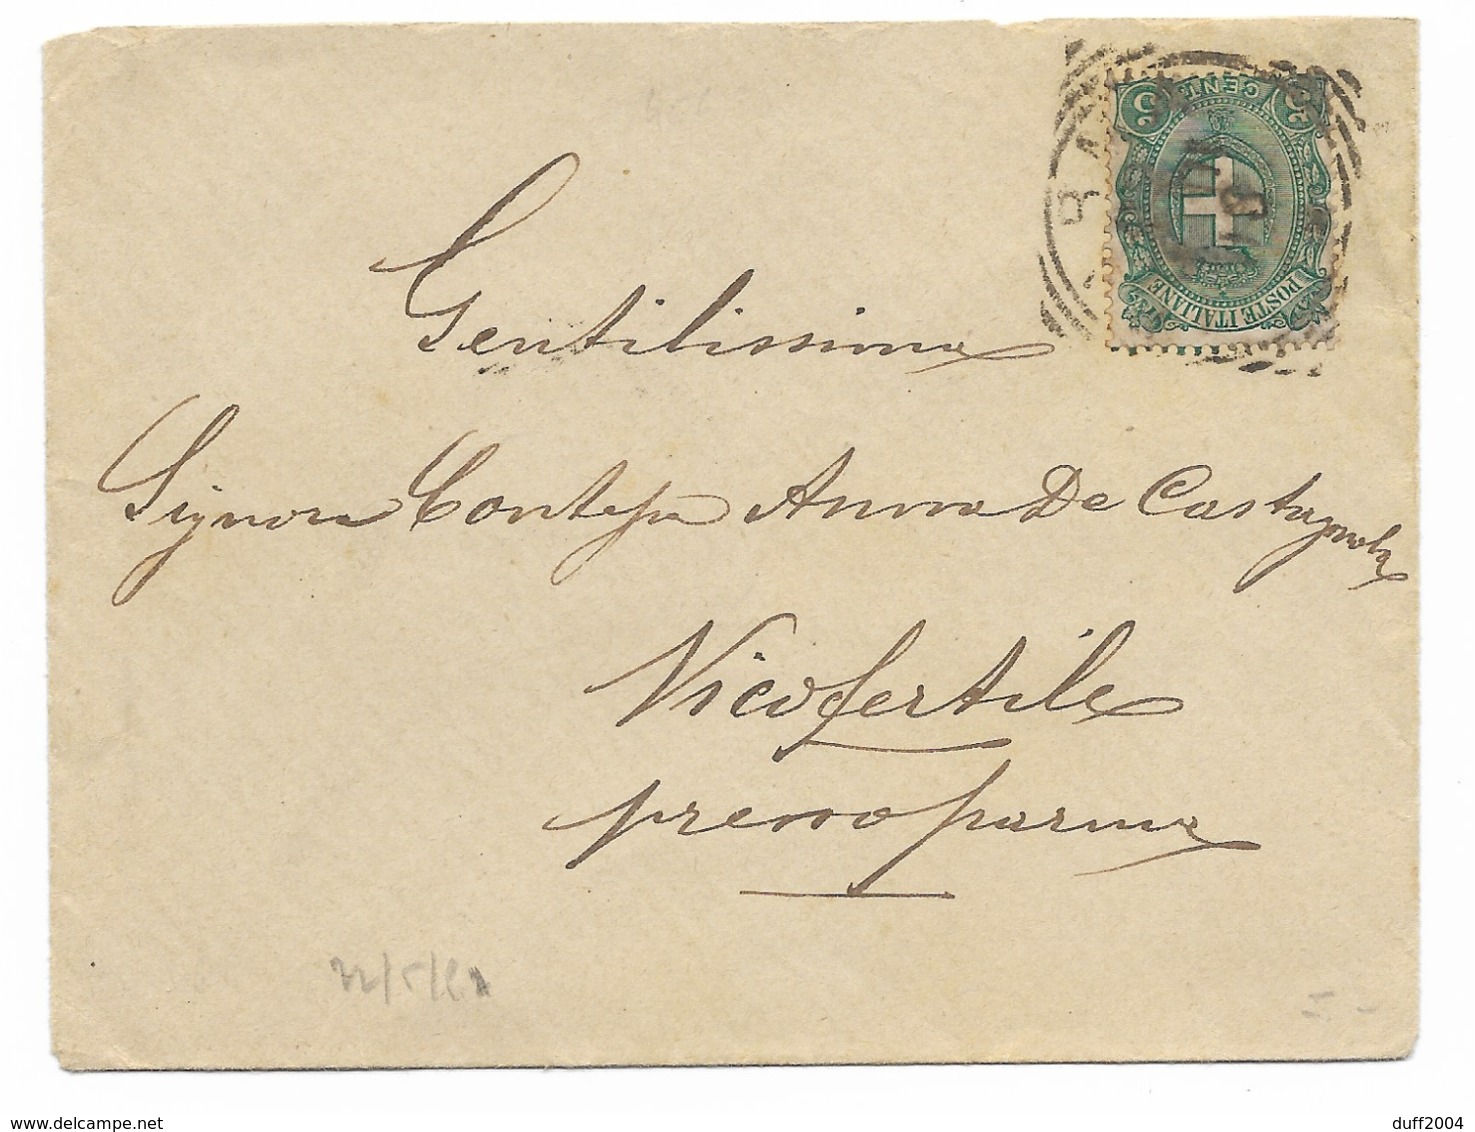 5 CENT. 5
POSTE ITALIANE
Gentilissima
Signora Contessa Anna De Castagnola
Vicofertile
presso Parma
delcampe.net
duff2004